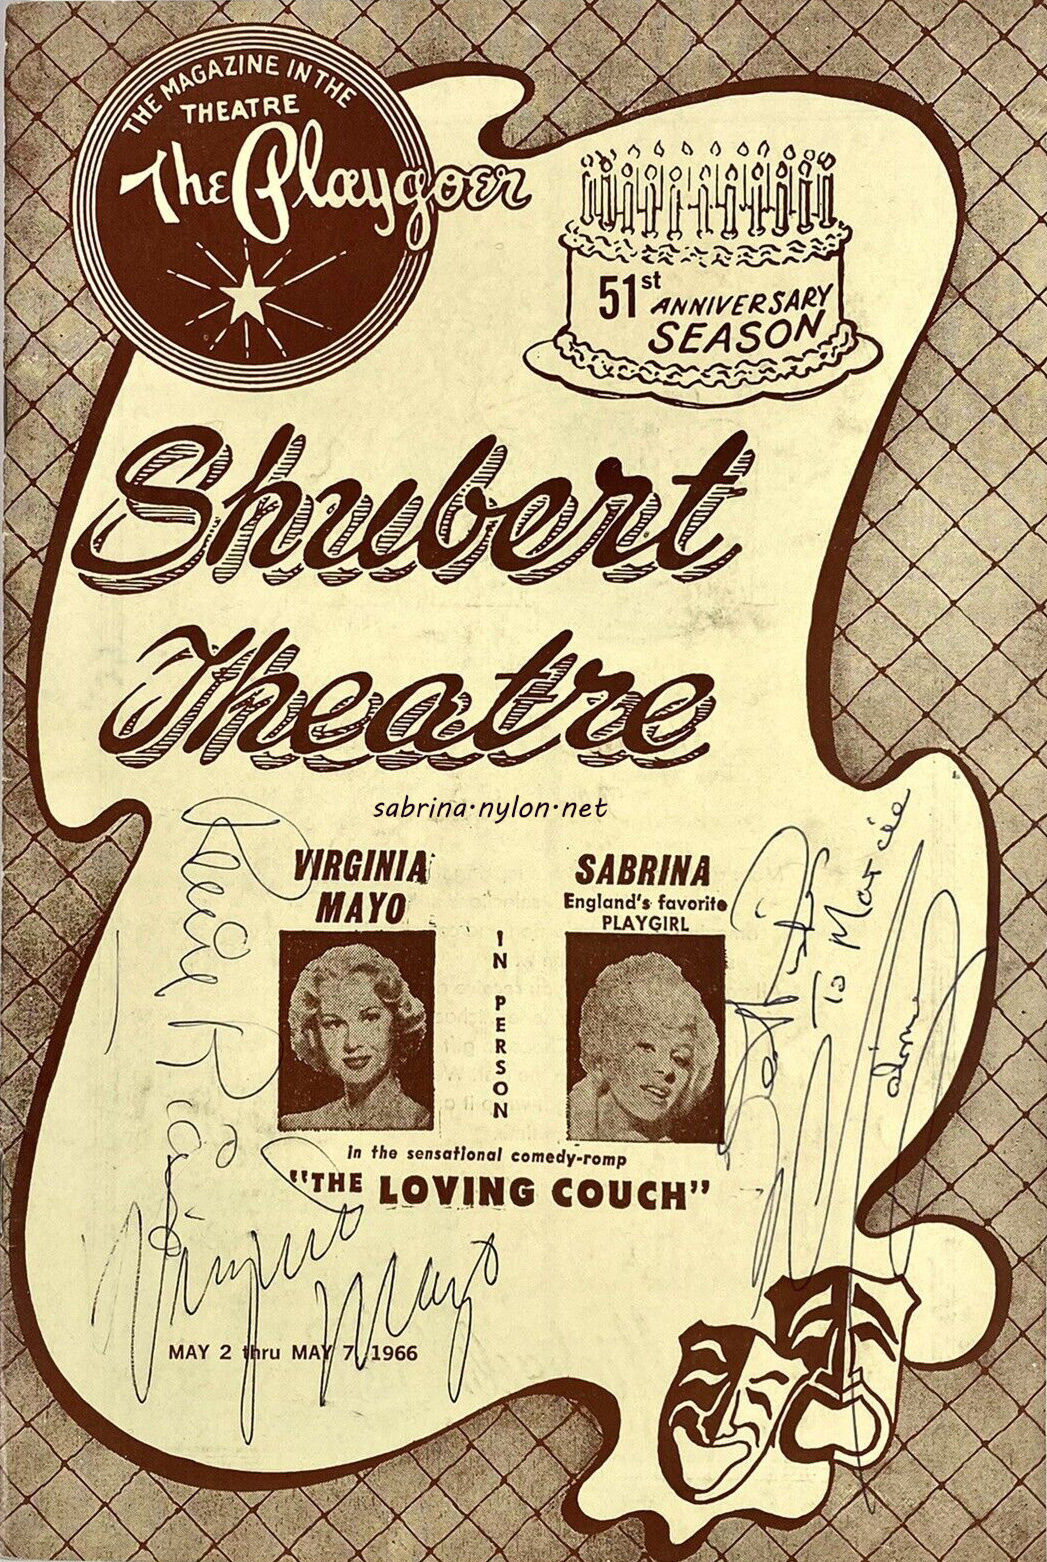 THE MAGAZINE IN THE
THEATRE
The Playgoer
51st ANNIVERSARY
SEASON
Shubert
Theatre
sabrina·nylon·net
VIRGINIA
MAYO
SABRINA
England's favorite
PLAYGIRL
IN PERSON
In the sensational comedy-romp
"THE LOVING COUCH"
Virginia Mayo
To Marcie
MAY 2 thru MAY 7, 1966